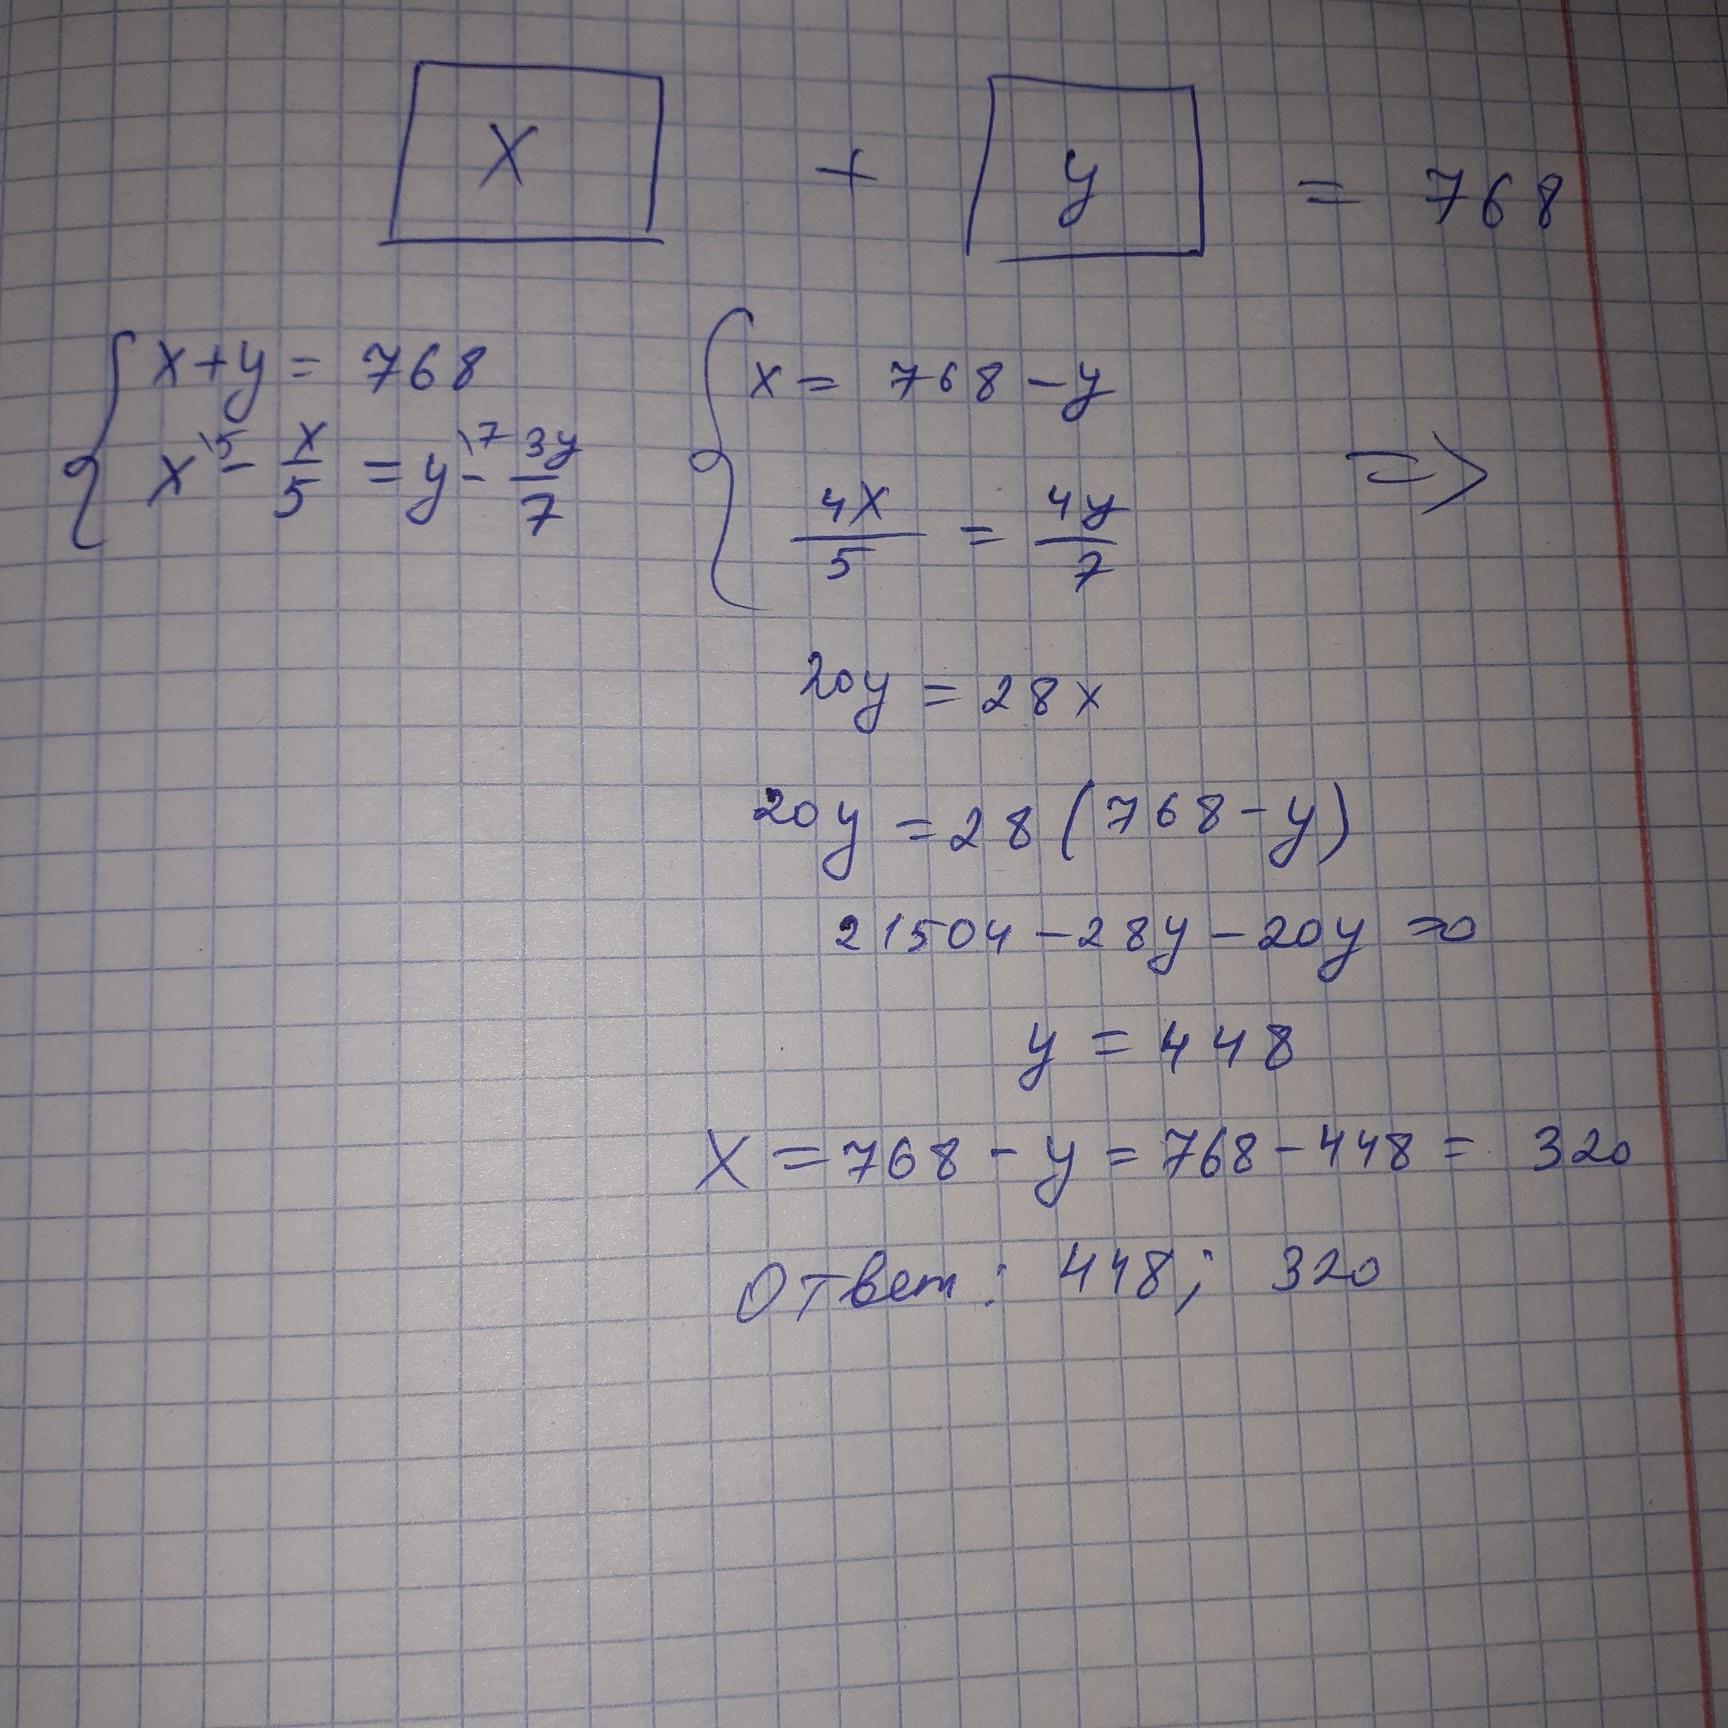 x + y = 768
{ x+y = 768
x\5 - x/5 = y\7 - 3y/7
{ x = 768 - y
4x/5 = 4y/7 =>
20y = 28x
20y = 28(768-y)
21504 - 28y - 20y = 0
y = 448
x = 768 - y = 768 - 448 = 320
Ответ: 448; 320